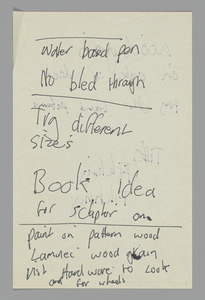 Water based pen
No bled through
Try different
sizes
Book Idea
for sculptor one
paint on pattern wood
Laminec wood grain
Visit Hardware to Look
and for wheels